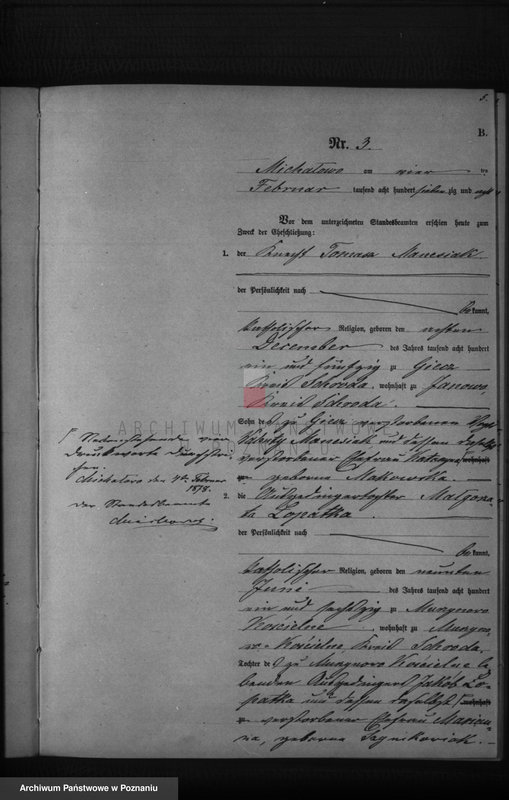 5.
B.
Nr. 3.
Michałowo am vier ten
Februar tausend acht hundert sieben zig und acht
Vor dem unterzeichneten Standesbeamten erschien heute zum
Zweck der Eheschließung:
1. der Knecht Tomasz Manesiak
der Persönlichkeit nach
be kannt,
katholischer Religion, geboren den achten
December des Jahres tausend acht hundert
ein und fünfzig zu Giecz
Kreis Schroda, wohnhaft zu Janowo,
Kreis Schroda.
Sohn de s zu Giecz verstorbenen
Manesiak und dessen daselbst
verstorbener Ehefrau wohnhaft
zu geborne Makowska.
2. die Ausgedingertochter Malgorza-
ta Lopatka
der Persönlichkeit nach
be kannt,
katholischer Religion, geboren den neunten
Juni des Jahres tausend acht hundert
ein und sechszig zu Murzynowo
Kościelne, wohnhaft zu Murzyno-
wo Kościelne, Kreis Schroda,
Tochter de s zu Murzynowo Kościelne le-
benden Ausgedingers Jakob Lo-
patka und dessen daselbst wohnhaft
zu verstorbener Ehefrau Marian-
na, geborne
Druckworte durchstri-
chen.
Michałowo den 4ten Februar
1878.
Der Standesbeamte
ARCHIWUM PAŃSTWOWE
W POZNANIU
Archiwum Państwowe w Poznaniu